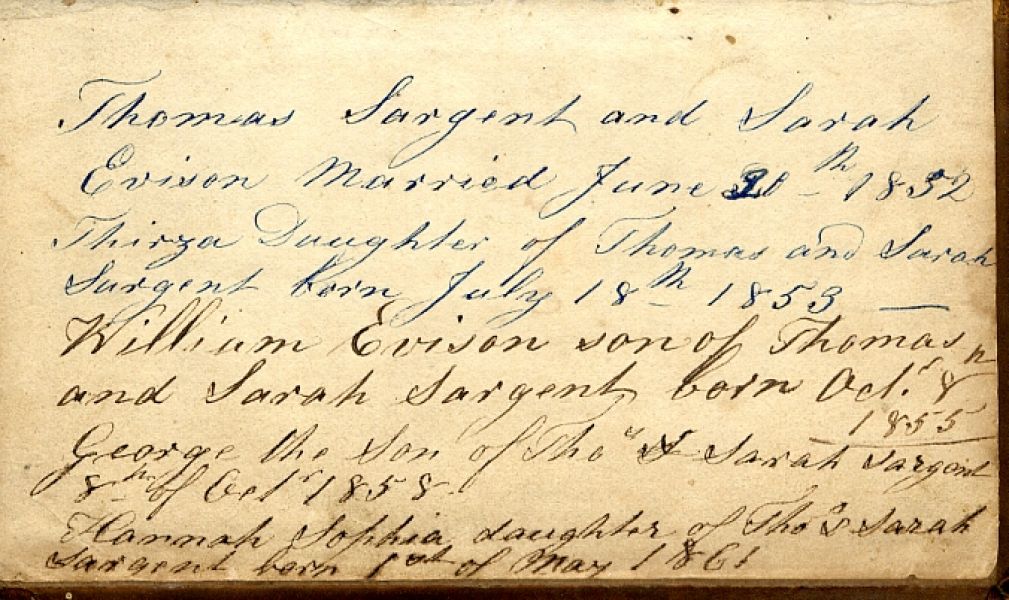 Thomas Sargent and Sarah
Evison Married June 20th 1852
Thirza Daughter of Thomas and Sarah
Sargent born July 18th 1853 —
William Evison son of Thomas
and Sarah Sargent born Octr 8th
1855
George the Son of Thos & Sarah Sargent
8th of Octr 1858.
Hannah Sophia daughter of Thos & Sarah
Sargent born 1st of May 1861